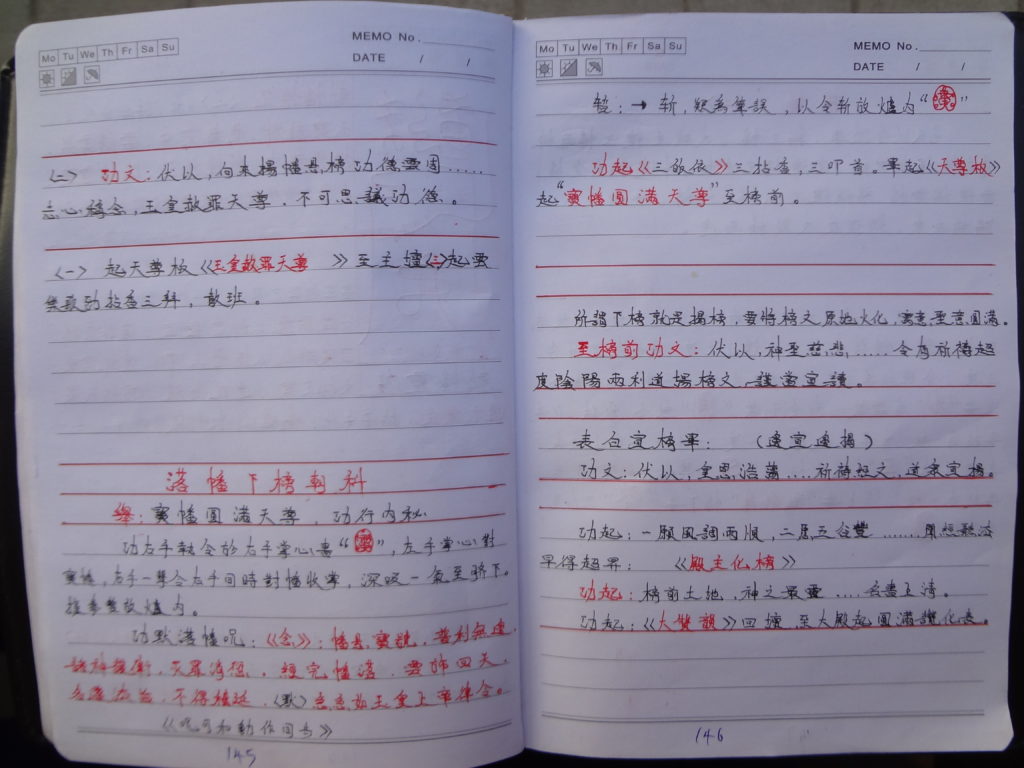 Mo Tu We Th Fr Sa Su
MEMO No.
DATE / /
(二) 功文:伏以,向来揚幡悬榜功德雲周.....
志心稱念,玉皇赦罪天尊,不可思議功德。
(一) 起天尊板《玉皇赦罪天尊 》至主壇(三)起雲
樂 拈香三拜,散班。
落幡下榜朝科
舉:寶幡圓滿天尊,功行内秘
功左手執令於右手掌心書“ ”,左手掌心對
寶幡,右手一舉令左手同時對幡收掌,深吸一氣至脐下。
放爐内。
功默落幡呪:《念》:幡悬寶號,普利無邊,
諸神擁衛,灭罪消愆,經完幡落,雲斾回天,
各遵法旨,不得稽延,(默)急急如玉皇上帝律令。
《呪可和動作同步》
145
Mo Tu We Th Fr Sa Su
MEMO No.
DATE / /
:→斩,疑為筆誤,以令斩放爐内“ ”
功起《三皈依》三拈香,三叩首。畢起《天尊板》
起“寶幡圓滿天尊”至榜前。
所謂下榜就是揭榜,要將榜文原地火化,寓意聖意圓滿。
至榜前功文:伏以,神聖慈悲......今有祈禱超
度陰陽兩利道場榜文,謹當宣讀。
表白宣榜畢: (邊宣邊揭)
功文:伏以,皇恩浩蕩....祈禱超文,道衆宣揚。
功起:一願風調雨順,二
早得超昇: 《殿主化榜》
功起:榜前土地,神之最靈....
功起:《大讚韻》回壇,至大殿起圓滿讚化表。
146